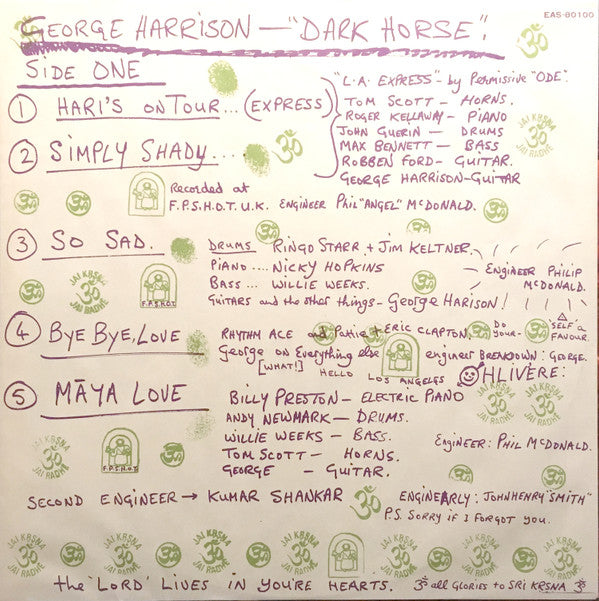 EAS-80100
GEORGE HARRISON — "DARK HORSE".
SIDE ONE
① HARI'S ON TOUR... (EXPRESS)
"L.A. EXPRESS" - by Permissive "ODE".
TOM SCOTT — HORNS.
ROGER KELLAWAY — PIANO
JOHN GUERIN — DRUMS
MAX BENNETT — BASS
ROBBEN FORD — GUITAR.
GEORGE HARRISON - GUITAR
② SIMPLY SHADY....
JAI KRSNA
ॐ
JAI RADHE
Recorded at
F.P.S.H.O.T. U.K. ENGINEER PHIL "ANGEL" McDONALD.
③ SO SAD.
DRUMS RINGO STARR + JIM KELTNER.
PIANO .... NICKY HOPKINS
BASS ... WILLIE WEEKS.
GUITARS and the other things - George HARISON!
ENGINEER PHILIP
McDONALD.
JAI KRSNA
ॐ
JAI RADHE
F.P.S.H.O.T.
④ BYE BYE, LOVE
RHYTHM ACE and Pattie + ERIC CLAPTON.
DO YOUR- SELF A FAVOUR.
George on Everything else engineer BREAKDOWN: GEORGE.
[WHAT!] HELLO LOS ANGELES OHLIVÈRE:
⑤ MĀYA LOVE
BILLY PRESTON — ELECTRIC PIANO
ANDY NEWMARK — DRUMS.
WILLIE WEEKS — BASS.
TOM SCOTT — HORNS.
GEORGE — GUITAR.
Engineer: PHIL McDONALD.
JAI KRSNA
ॐ
JAI RADHE
F.P.S.H.O.T
JAI KRSNA
ॐ
JAI RADHE
SECOND ENGINEER → KUMAR SHANKAR
ENGINEARLY: JOHNHENRY "SMITH"
P.S. SORRY IF I FORGOT YOU.
JAI KRSNA ॐ JAI RADHE
the 'LORD' LIVES IN YOU'RE HEARTS. ॐ all GLORIES to SRI KRSNA ॐ